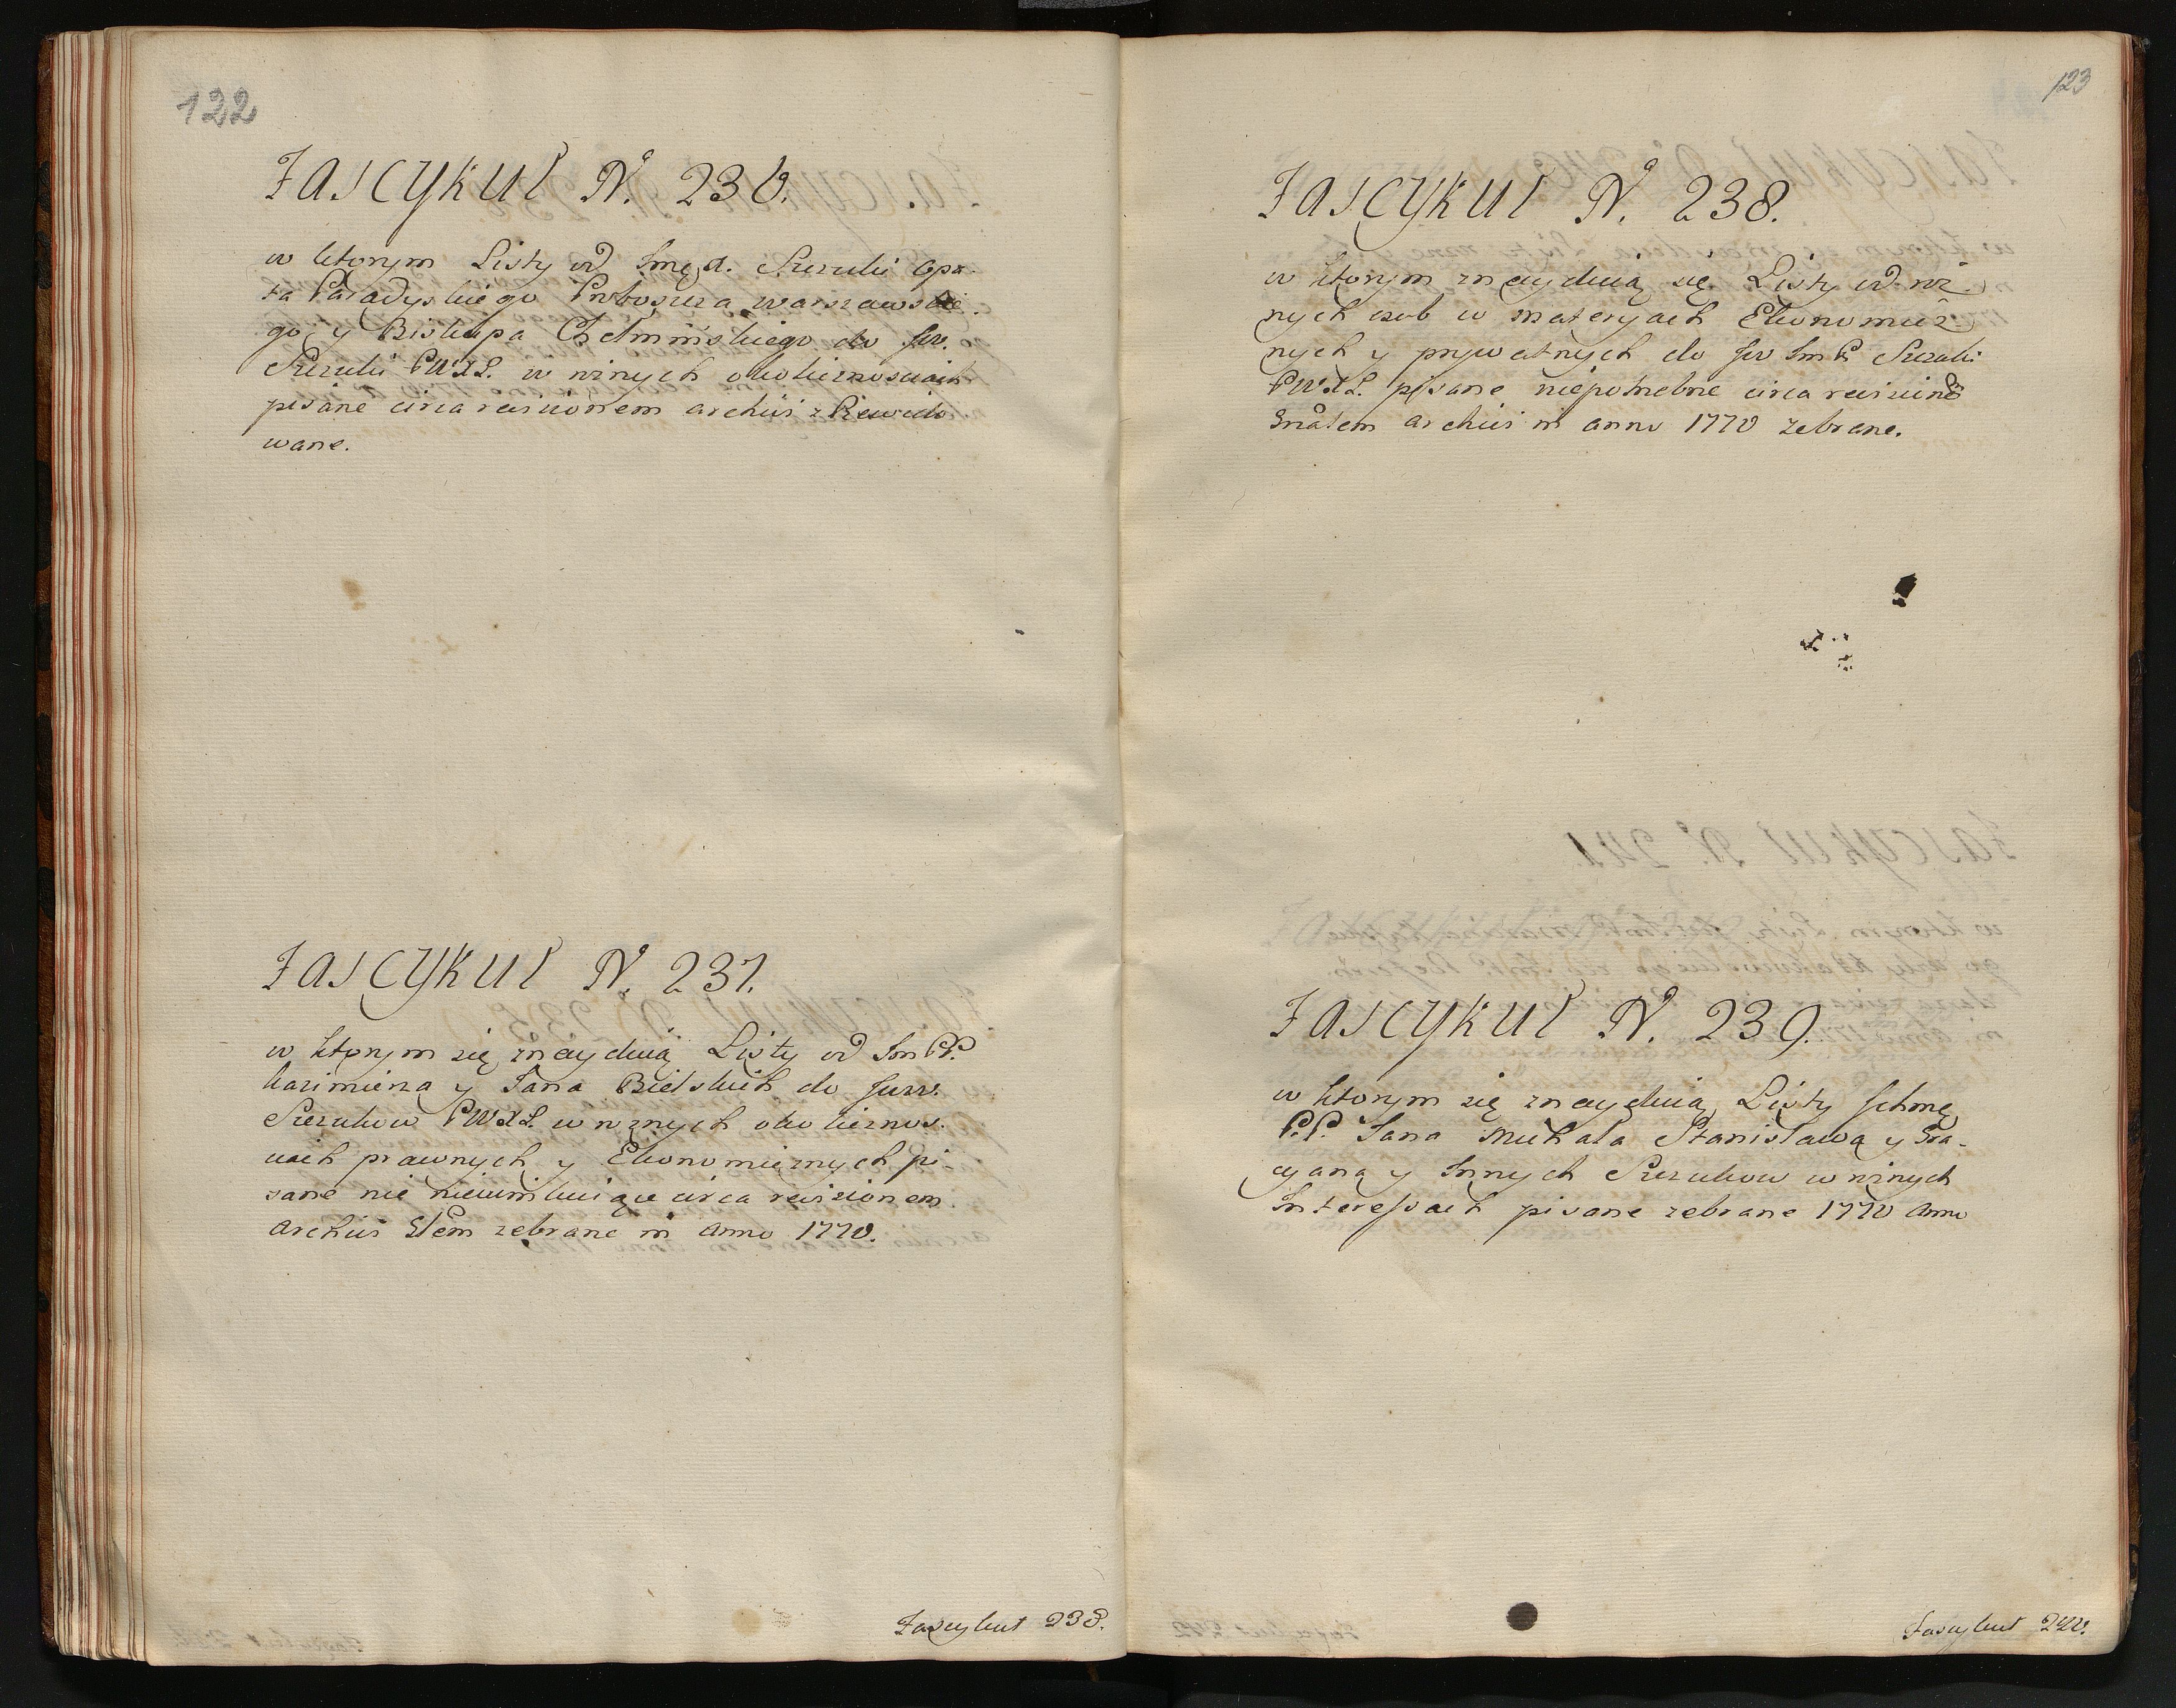 122
Fascykuł N. 236.
w ktorym Listy od Jmę d. Szczuki Opa-
ta Paradyskiego Proboszcza warszawskie
go y Biskupa Chełminskiego do Jw.
Szczuki PWXL. w roznych okolicznosciach
pisane circa revisionem archivi zRewido
wane.
Fascykuł N. 237.
w ktorym się znayduią Listy od Jm PP.
kazimierza y Jana Bielskich do Jww.
Szczukow PWXL. w roznych okolicznos-
ciach prawnych y Ekonomicznych pi-
sane nie nicuwłuiące circa revisionem
archivi Etem zebrane in anno 1770.
Fascykuł 238.
123
Fascykuł N. 238.
w ktorym znayduią się Listy od roż-
nych osob w materyach Ekonomicz-
nych y prywatnych do Jw Jm P. Szczuki
PWXL. pisane niepotrzebne circa revisino
Gnałem archivi in anno 1770 zebrane.
Fascykuł N. 239.
w ktorym się znayduią Listy Ichmę
P.P. Jana Michała Stanisława y Gra-
cyana y Innych Szczukow w roznych
Interessach pisane zebrane 1770 Anno
Fascykuł 240.